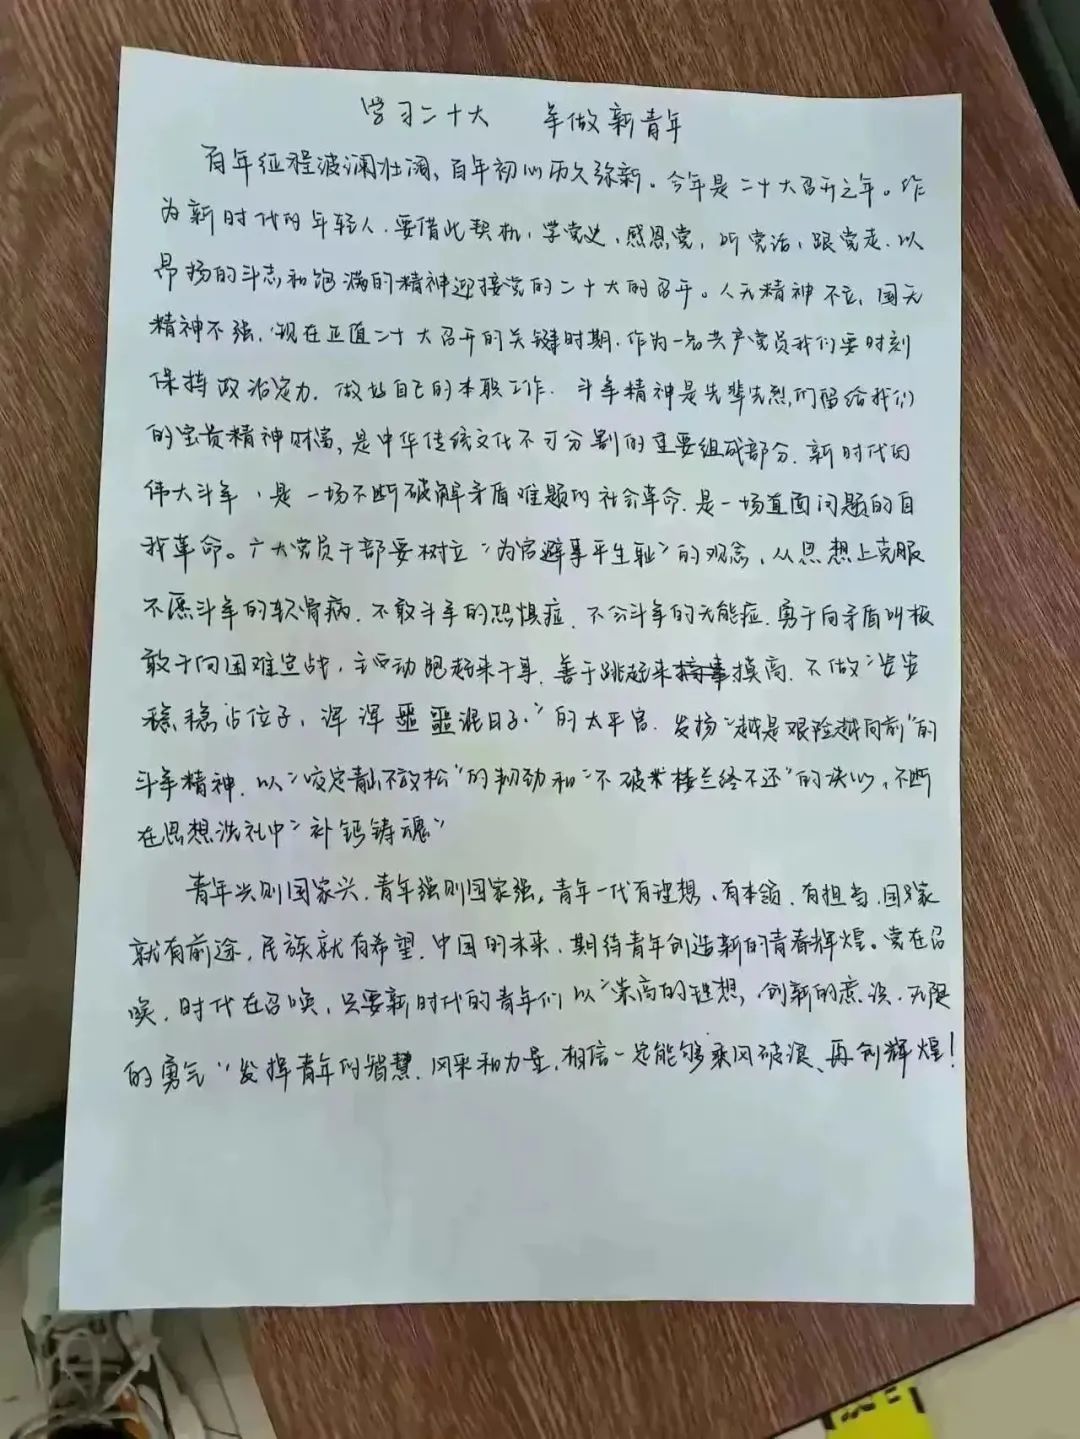 学习二十大 争做新青年
百年征程波澜壮阔,百年初心历久弥新。今年是二十大召开之年。作
为新时代的年轻人.要借此契机,学党史,感恩党,听党话,跟党走.以
昂扬的斗志和饱满的精神迎接党的二十大的召开。人无精神不立,国无
精神不强.现在正值二十大召开的关键时期.作为一名共产党员我们要时刻
保持政治定力.做好自己的本职工作.斗争精神是先辈先烈们留给我们
的宝贵精神财富,是中华传统文化不可分割的重要组成部分.新时代的
伟大斗争,是一场不断破解矛盾难题的社会革命.是一场直面问题的自
我革命。广大党员干部要树立“为官避事平生耻”的观念,从思想上克服
不愿斗争的软骨病.不敢斗争的恐惧症.不会斗争的无能症.勇于向矛盾叫板
敢于向困难宣战,主动跑起来干事.善于跳起来摸高.不做“安安
稳稳占位子,浑浑噩噩混日子.”的太平官.发扬“越是艰险越向前”的
斗争精神.以“咬定青山不放松”的韧劲和“不破楼兰终不还”的决心,不断
在思想洗礼中“补钙铸魂”
青年兴则国家兴.青年强则国家强,青年一代有理想、有本领.有担当.国家
就有前途,民族就有希望.中国的未来.期待青年创造新的青春辉煌。党在召
唤.时代在召唤,只要新时代的青年们以“崇高的理想,创新的意识.无限
的勇气”发挥青年的智慧.风采和力量.相信一定能够乘风破浪、再创辉煌!